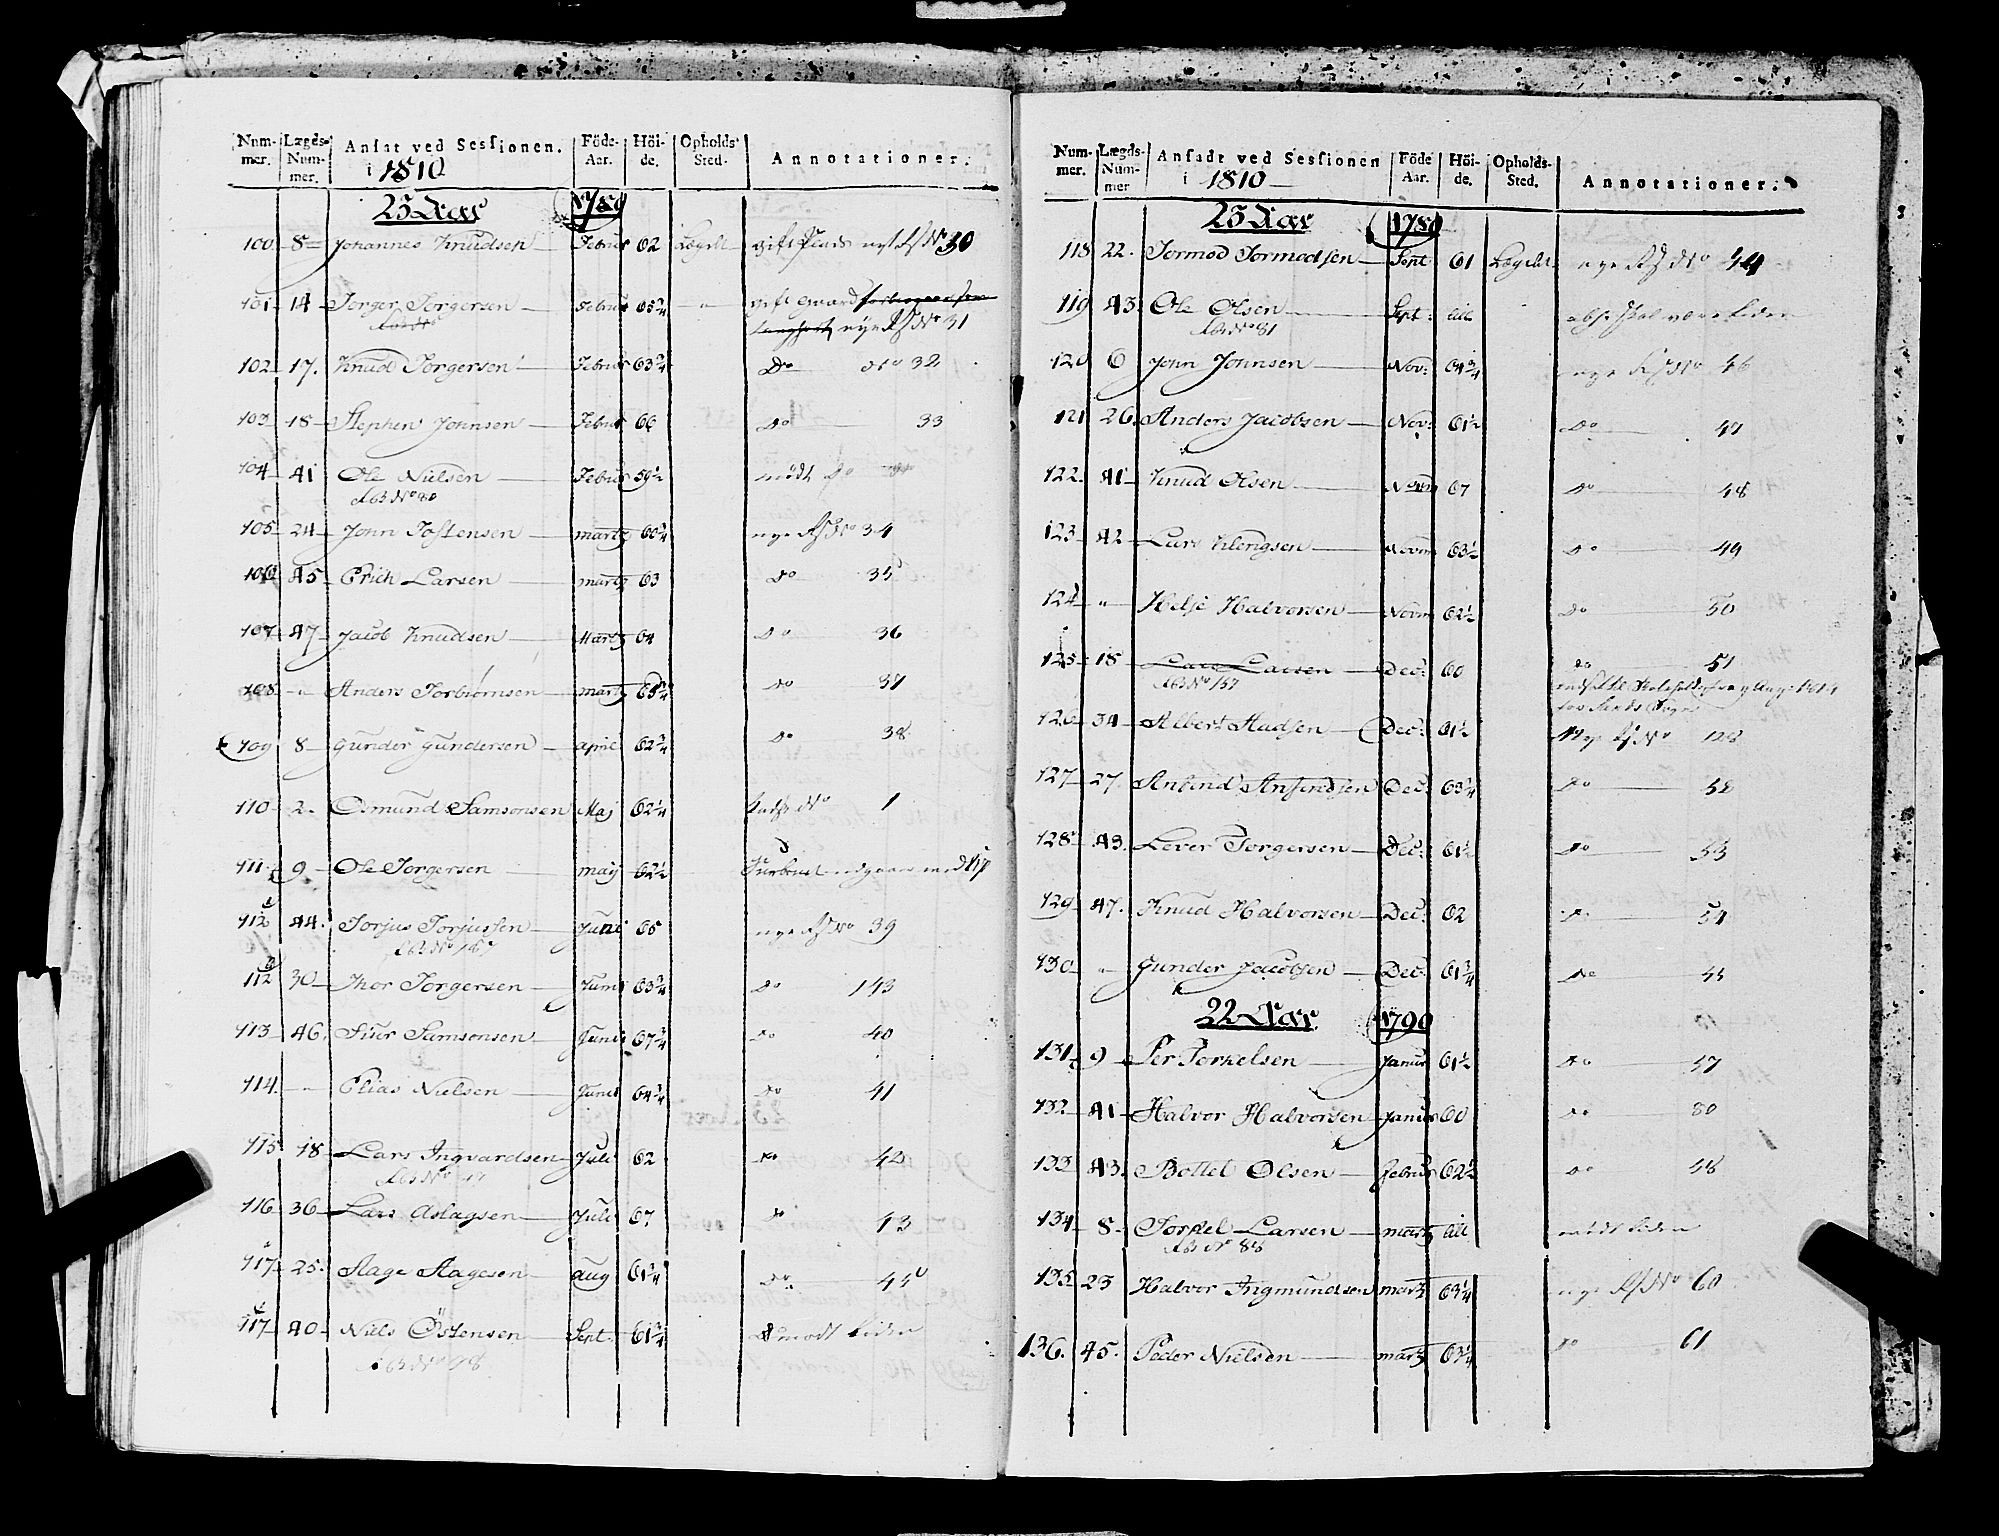 Num- Lægds- Ansat ved Sessionen. Föde- Höi- Opholds- Annotationer.
mer. Num- i 1810 Aar. de. Sted.
mer.
23 Aar 1789
100 8 Johannes Knudsen Febru 62 Lægdet gift nye No 30
101 14 Torger Torgersen Febru 65 3/4 " gift Gaard
nye No 31
102 17. Knud Torgersen Febru 63 3/4 Do No 32
103 18 Stephen Johnsen Febru 66 Do 33
104 41 Ole Nielsen Febru 59 1/2 mödt
No 80
105 24 John Tostensen martz 60 3/4 nye No 34
106 45 Erich Larsen martz 63 Do 35
107 47 Jacob Knudsen Martz 64 Do 36
108 " Anders Torbiörnsen martz 65 3/4 Do 37
109 8 Gunder Gundersen april 62 3/4 Do 38
110 2. Osmund Samsonsen Maj 62 1/4 No 1
111 9 Ole Torgersen maij 62 1/2
112 44. Torjus Torjussen Juni 65 nye No 39
112 30 Thor Torgersen Juni 63 3/4 Do 143
113 46. Siur Samsonsen Juni 67 3/4 Do 40
114. " Elias Nielsen Juni 64 3/4 Do 41
115 18 Lars Ingvardsen Juli 62 Do 42
116 36 Lars Aslagsen Juli 67 Do 43
117 25. Aage Aagesen aug 61 3/4 Do 45
117 40 Niels Östensen Sept. 61 3/4 mödt
Num- Lægds- Ansadt ved Sessionen Föde Höi- Opholds- Annotationer.
mer. Num- i 1810 Aar. de. Sted.
mer
23 Aar 1789
118 22. Tormod Tormodsen Sept 61 Lægdet nye No 44
119 43. Ole Olsen Sept.
No 81
120 6 John Johnsen Nov: 64 3/4 nye No 46
121 26. Anders Jacobsen Nov: 61 1/2 Do 47
122. 41 Knud Olsen Novm 67 Do 48
123 42 Lars Klengsen Novm 63 1/2 Do 49
124 " Helje Halvorsen Novm 62 1/2 Do 50
125 18 Lars Larsen Dec: 60 Do 51
No 157
126 34 Albert Aadsen Dec: 61 1/2 Nye No 128
127 27. Anbend Dec: 63 1/4 Do 52
128 43. Lever Torgersen Dec: 61 1/2 Do 53
129 47. Knud Halvorsen Dec: 62 Do 54
130 " Gunder Jacobsen Dec: 61 3/4 Do 55
22 Aar. 1790
131 9 Per Torkelsen Janur 61 1/2 Do 57
132 41 Halvor Halvorsen Janur 60 Do 80
133 43. Bottel Olsen Februr 62 1/2 Do 58
134 8 Torkel Larsen martz mödt
No 88
135 23 Halvor Ingmundsen martz 63 1/4 nye No 60
136. 45. Peder Nielsen martz 63 1/4 Do 61